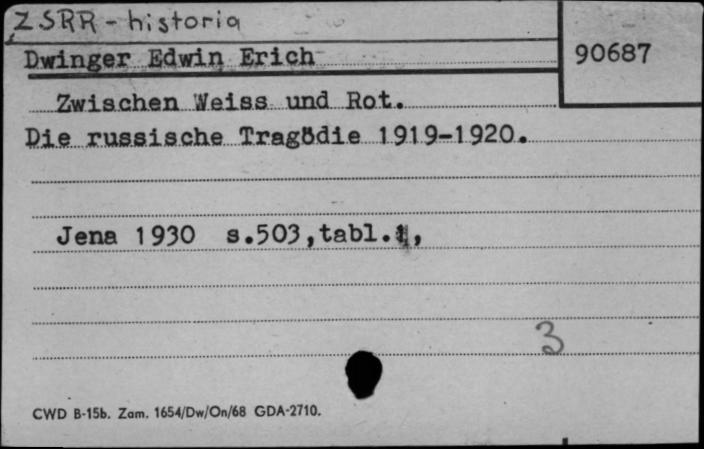 ZSRR - historia
Dwinger Edwin Erich
90687
Zwischen Weiss und Rot.
Die russische Tragödie 1919-1920.
Jena 1930 s.503,tabl.1,
3
CWD B-15b. Zam. 1654/Dw/On/68 GDA-2710.